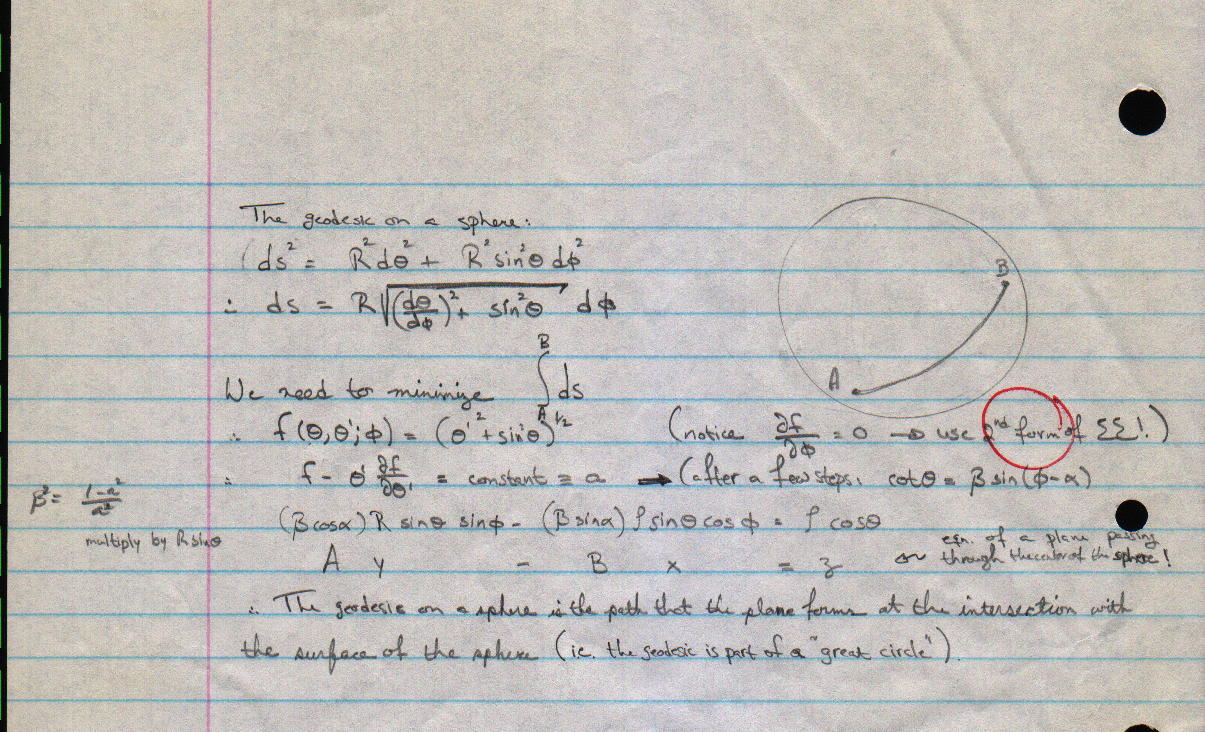 The geodesic on a sphere:
ds² = R²dθ² + R²sin²θ dφ²
∴ ds = R√((dθ/dφ)² + sin²θ) dφ
B
We need to minimize ∫_A^B ds
A
∴ f(θ,θ';φ) = (θ'² + sin²θ)^1/2 (notice ∂f/∂φ = 0 → use 2nd form of ΣΣ!)
∴ f - θ' ∂f/∂θ' = constant = a → (after a few steps: cotθ = β sin(φ-α)
β² = (1-a²)/a²
(βcosα) R sinθ sinφ - (β sinα) ρ sinθ cosφ = ρ cosθ
multiply by R sinθ
A y - B x = z ~ eqn. of a plane passing
through the center of the sphere!
∴ The geodesic on a sphere is the path that the plane forms at the intersection with
the surface of the sphere (ie. the geodesic is part of a "great circle").